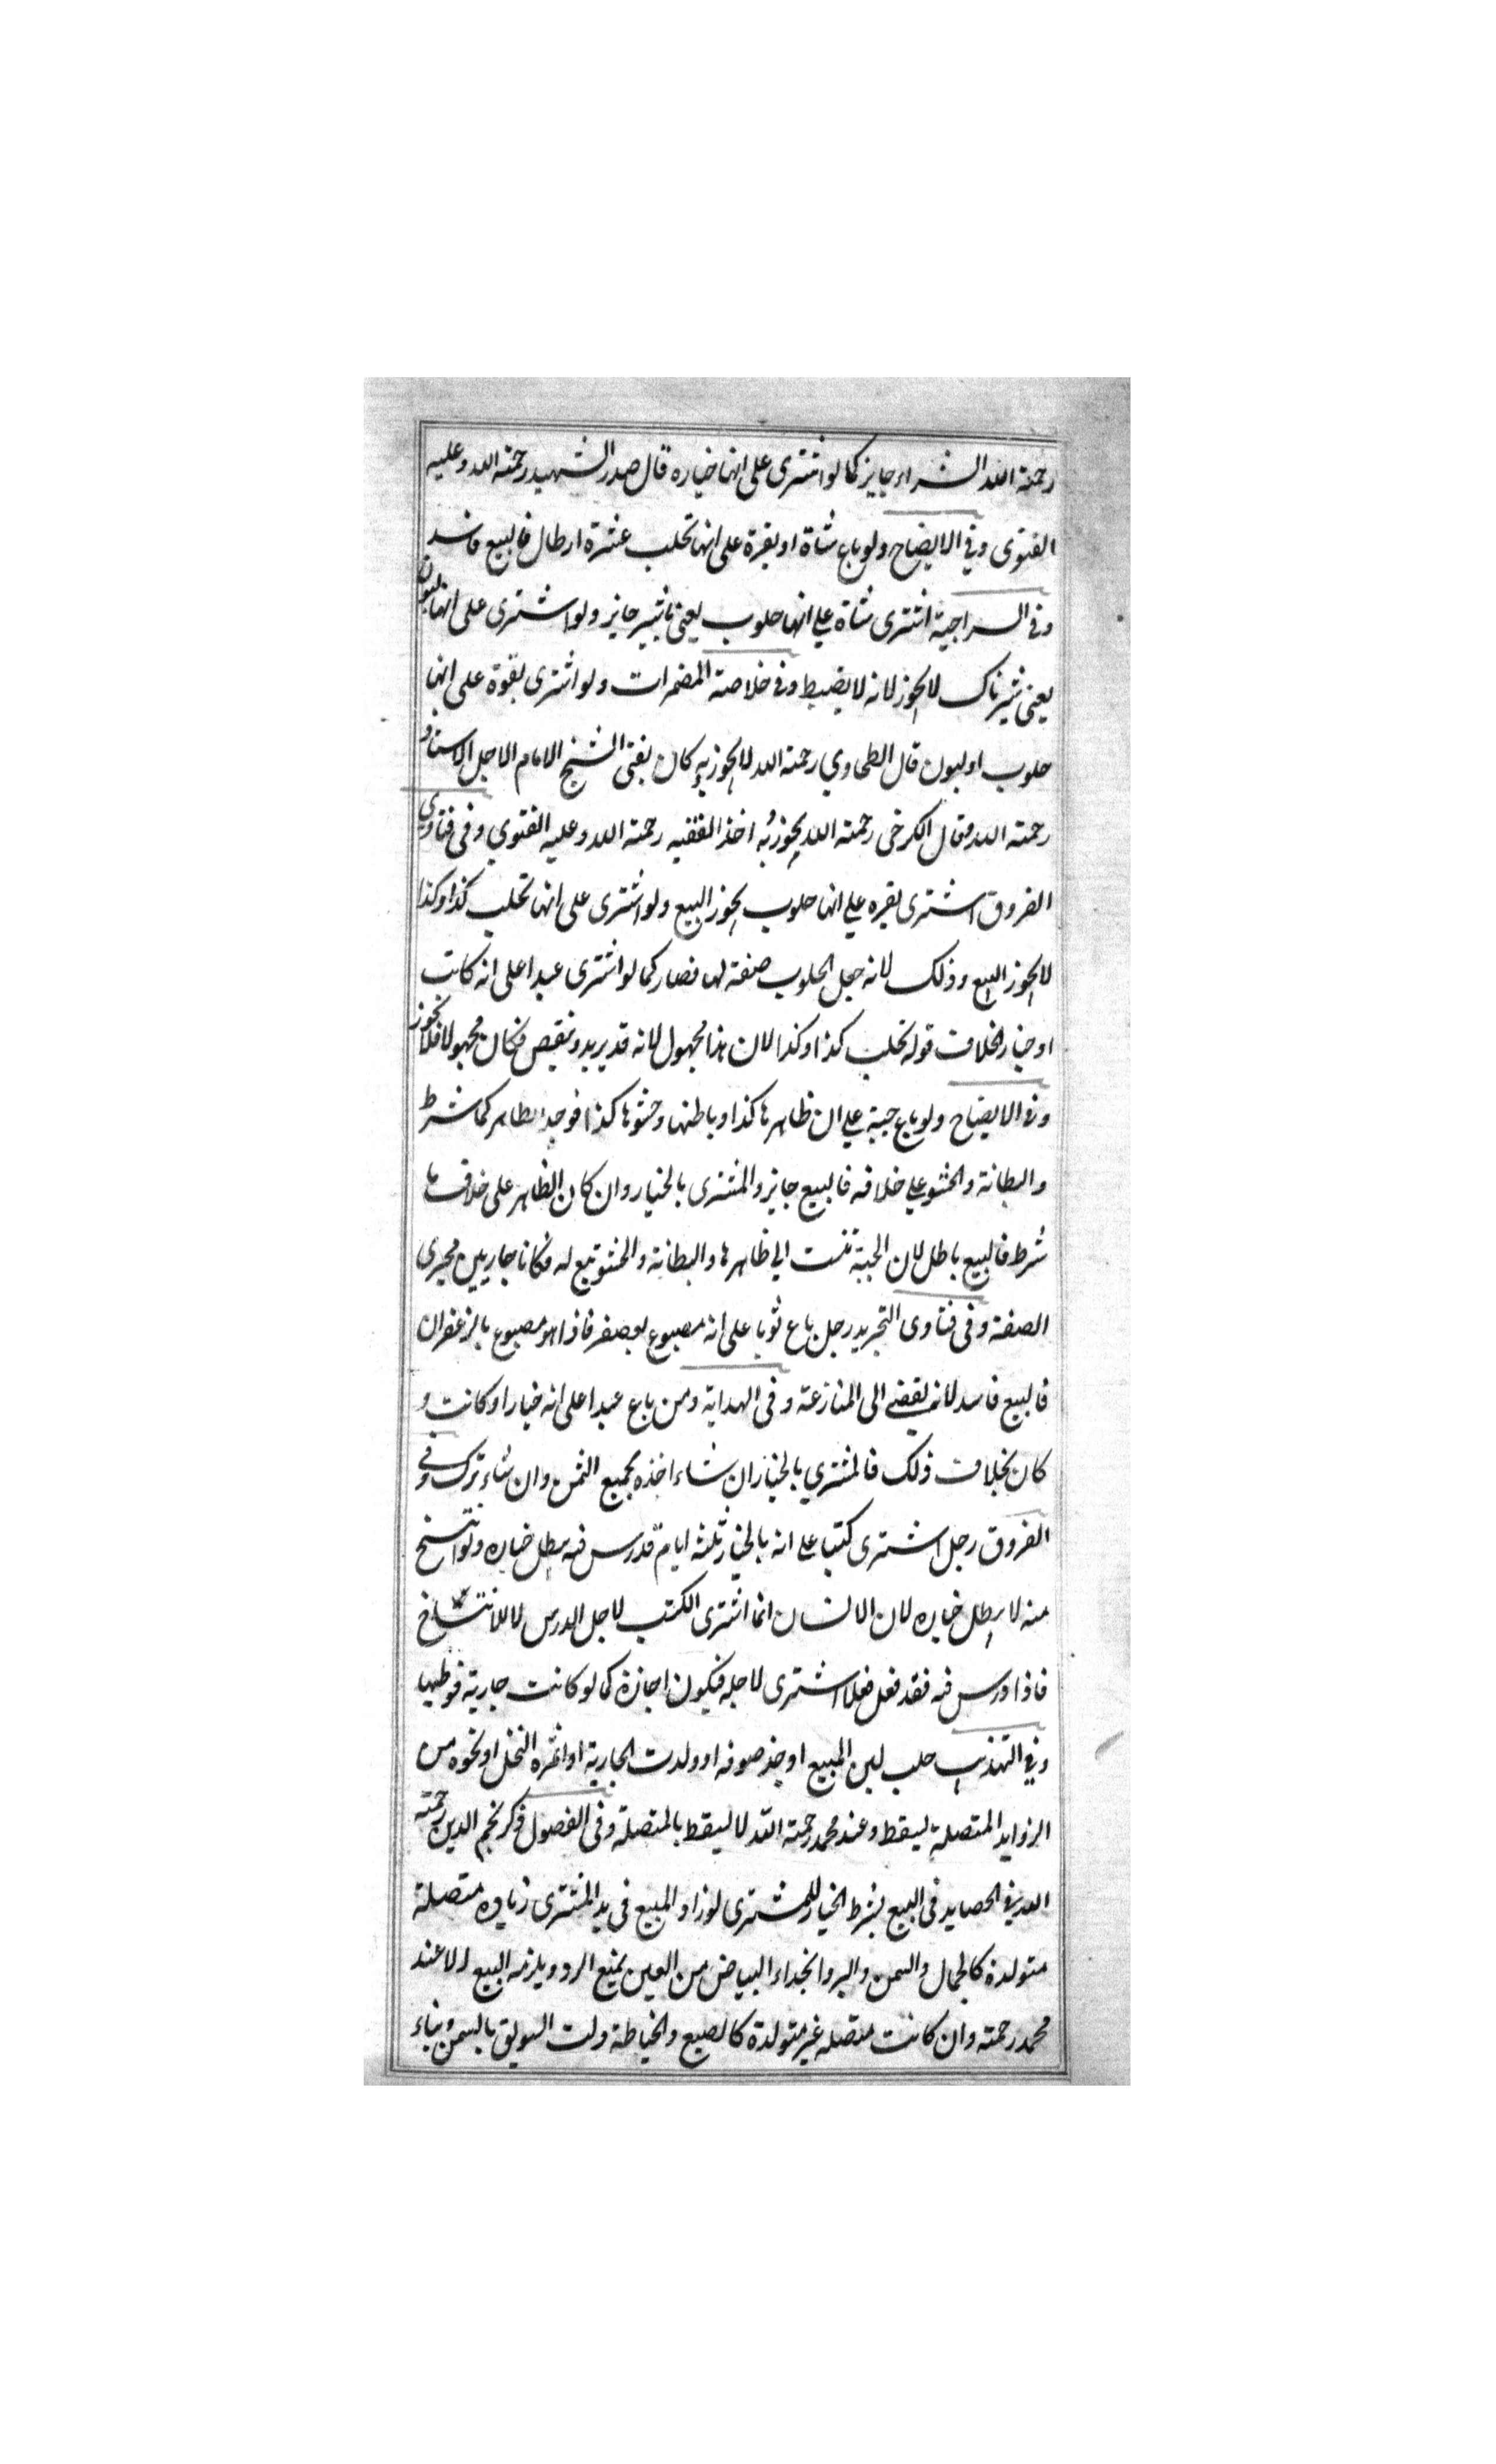 رحمة الله الشراء جايز كما لو اشترى على انها خباره قال صدر الشهيد رحمة الله وعليه
الفتوى وفي الايضاح ولو باع شاة او بقرة على انها تحلب عشرة ارطال فالبيع فاسد
وفي السراجية اشترى شاة علي انها حلوب يعني باشير جايز ولو اشترى على انها لبون
يعني شيرناك لا يجوز لانه لا يضبط وفي خلاصة المضمرات ولو اشترى بقرة على انها
حلوب او لبون قال الطحاوي رحمة الله لا يجوز به كان يفتي الشيخ الامام الاجل الاستاد
رحمة الله وقال الكرخي رحمة الله يجوز به اخذ الفقيه رحمة الله وعليه الفتوي وفي فتاوي
الفروق اشترى بقره علي انها حلوب يجوز البيع ولو اشترى على انها تحلب كذا وكذا
لا يجوز البيع وذلك لانه جعل الحلوب صفة لها فصار كما لو اشترى عبدا على انه كاتب
او خباز بخلاف قوله تحلب كذا وكذا لان هذا مجهول لانه قد يزيد وينقص فكان مجهولا فلا يجوز
وفي الايضاح ولو باع جبة علي ان ظاهرها كذا وباطنها وحشوها كذا فوجد الظاهر كما شرط
والبطانة والحشو علي خلافه فالبيع جايز والمشترى بالخيار وان كان الظاهر على خلاف ما
شرط فالبيع باطل لان الجبة تنسب الي ظاهرها والبطانة والحشو تبع له فكانا جاريين مجرى
الصفة وفي فتاوى التجريد رجل باع ثوبا على انه مصبوع بعصفر فاذا هو مصبوع بالزعفران
فالبيع فاسد لانه يفضي الى المنازعة وفي الهداية ومن باع عبدا على انه خباز او كاتب و
كان بخلاف ذلك فالمشتري بالخيار ان شاء اخذه بجميع الثمن وان شاء ترك وفي
الفروق رجل اشترى كتبا علي انه بالخيار ثلثه ايام فدرس فيه يبطل خياره ولو انتسخ
منه لا يبطل خياره لان الانسان انما اشترى الكتب لاجل الدرس لا للانتساخ
فاذا درس فيه فقد فعل فعلا اشترى لاجله فيكون اجازة كما لو كانت جارية فوطيها
وفي التهذيب حلب لبن المبيع او جز صوفه او ولدت الجارية او اثمره النخل او نحوه من
الزوايد المتصلة يسقط وعند محمد رحمة الله لا يسقط بالمتصلة وفي الفصول ذكر نجم الدين رحمة
الله في الحصايد في البيع بشرط الخيار للمشترى لو زاد المبيع في يد المشترى زياده متصلة
متولدة كالجمال والسمن والبرء وانجلاء البياض من العين يمنع الرد ويلزمه البيع الا عند
محمد رحمة وان كانت متصله غير متولدة كالصبع والخياطة ولت السويق بالسمن وبناء